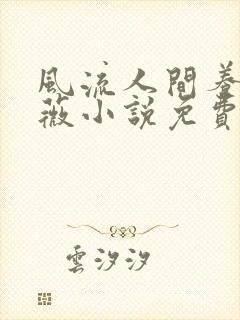 風流人間養
薇小說免費
雲汐汐